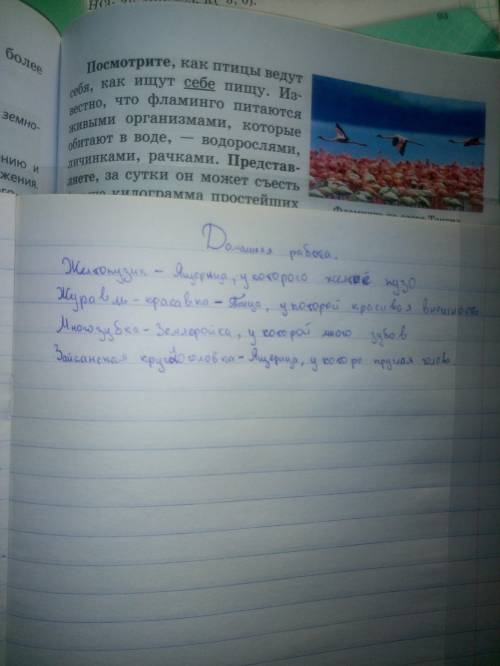 более
земно-
нию и
жения.
93
Посмотрите, как птицы ведут
себя, как ищут себе пищу. Из-
вестно, что фламинго питаются
живыми организмами, которые
обитают в воде, — водорослями,
личинками, рачками. Представ-
ляете, за сутки он может съесть
килограмма простейших
Домашняя работа.
Желтопузик - Ящерица, у которого желтое пузо
Журавль-красавка - Птица, у которой красивая внешность
Многозубка - Землеройка, у которой много зубов
Зайсанская круглоголовка - Ящерица, у которо круглая голова